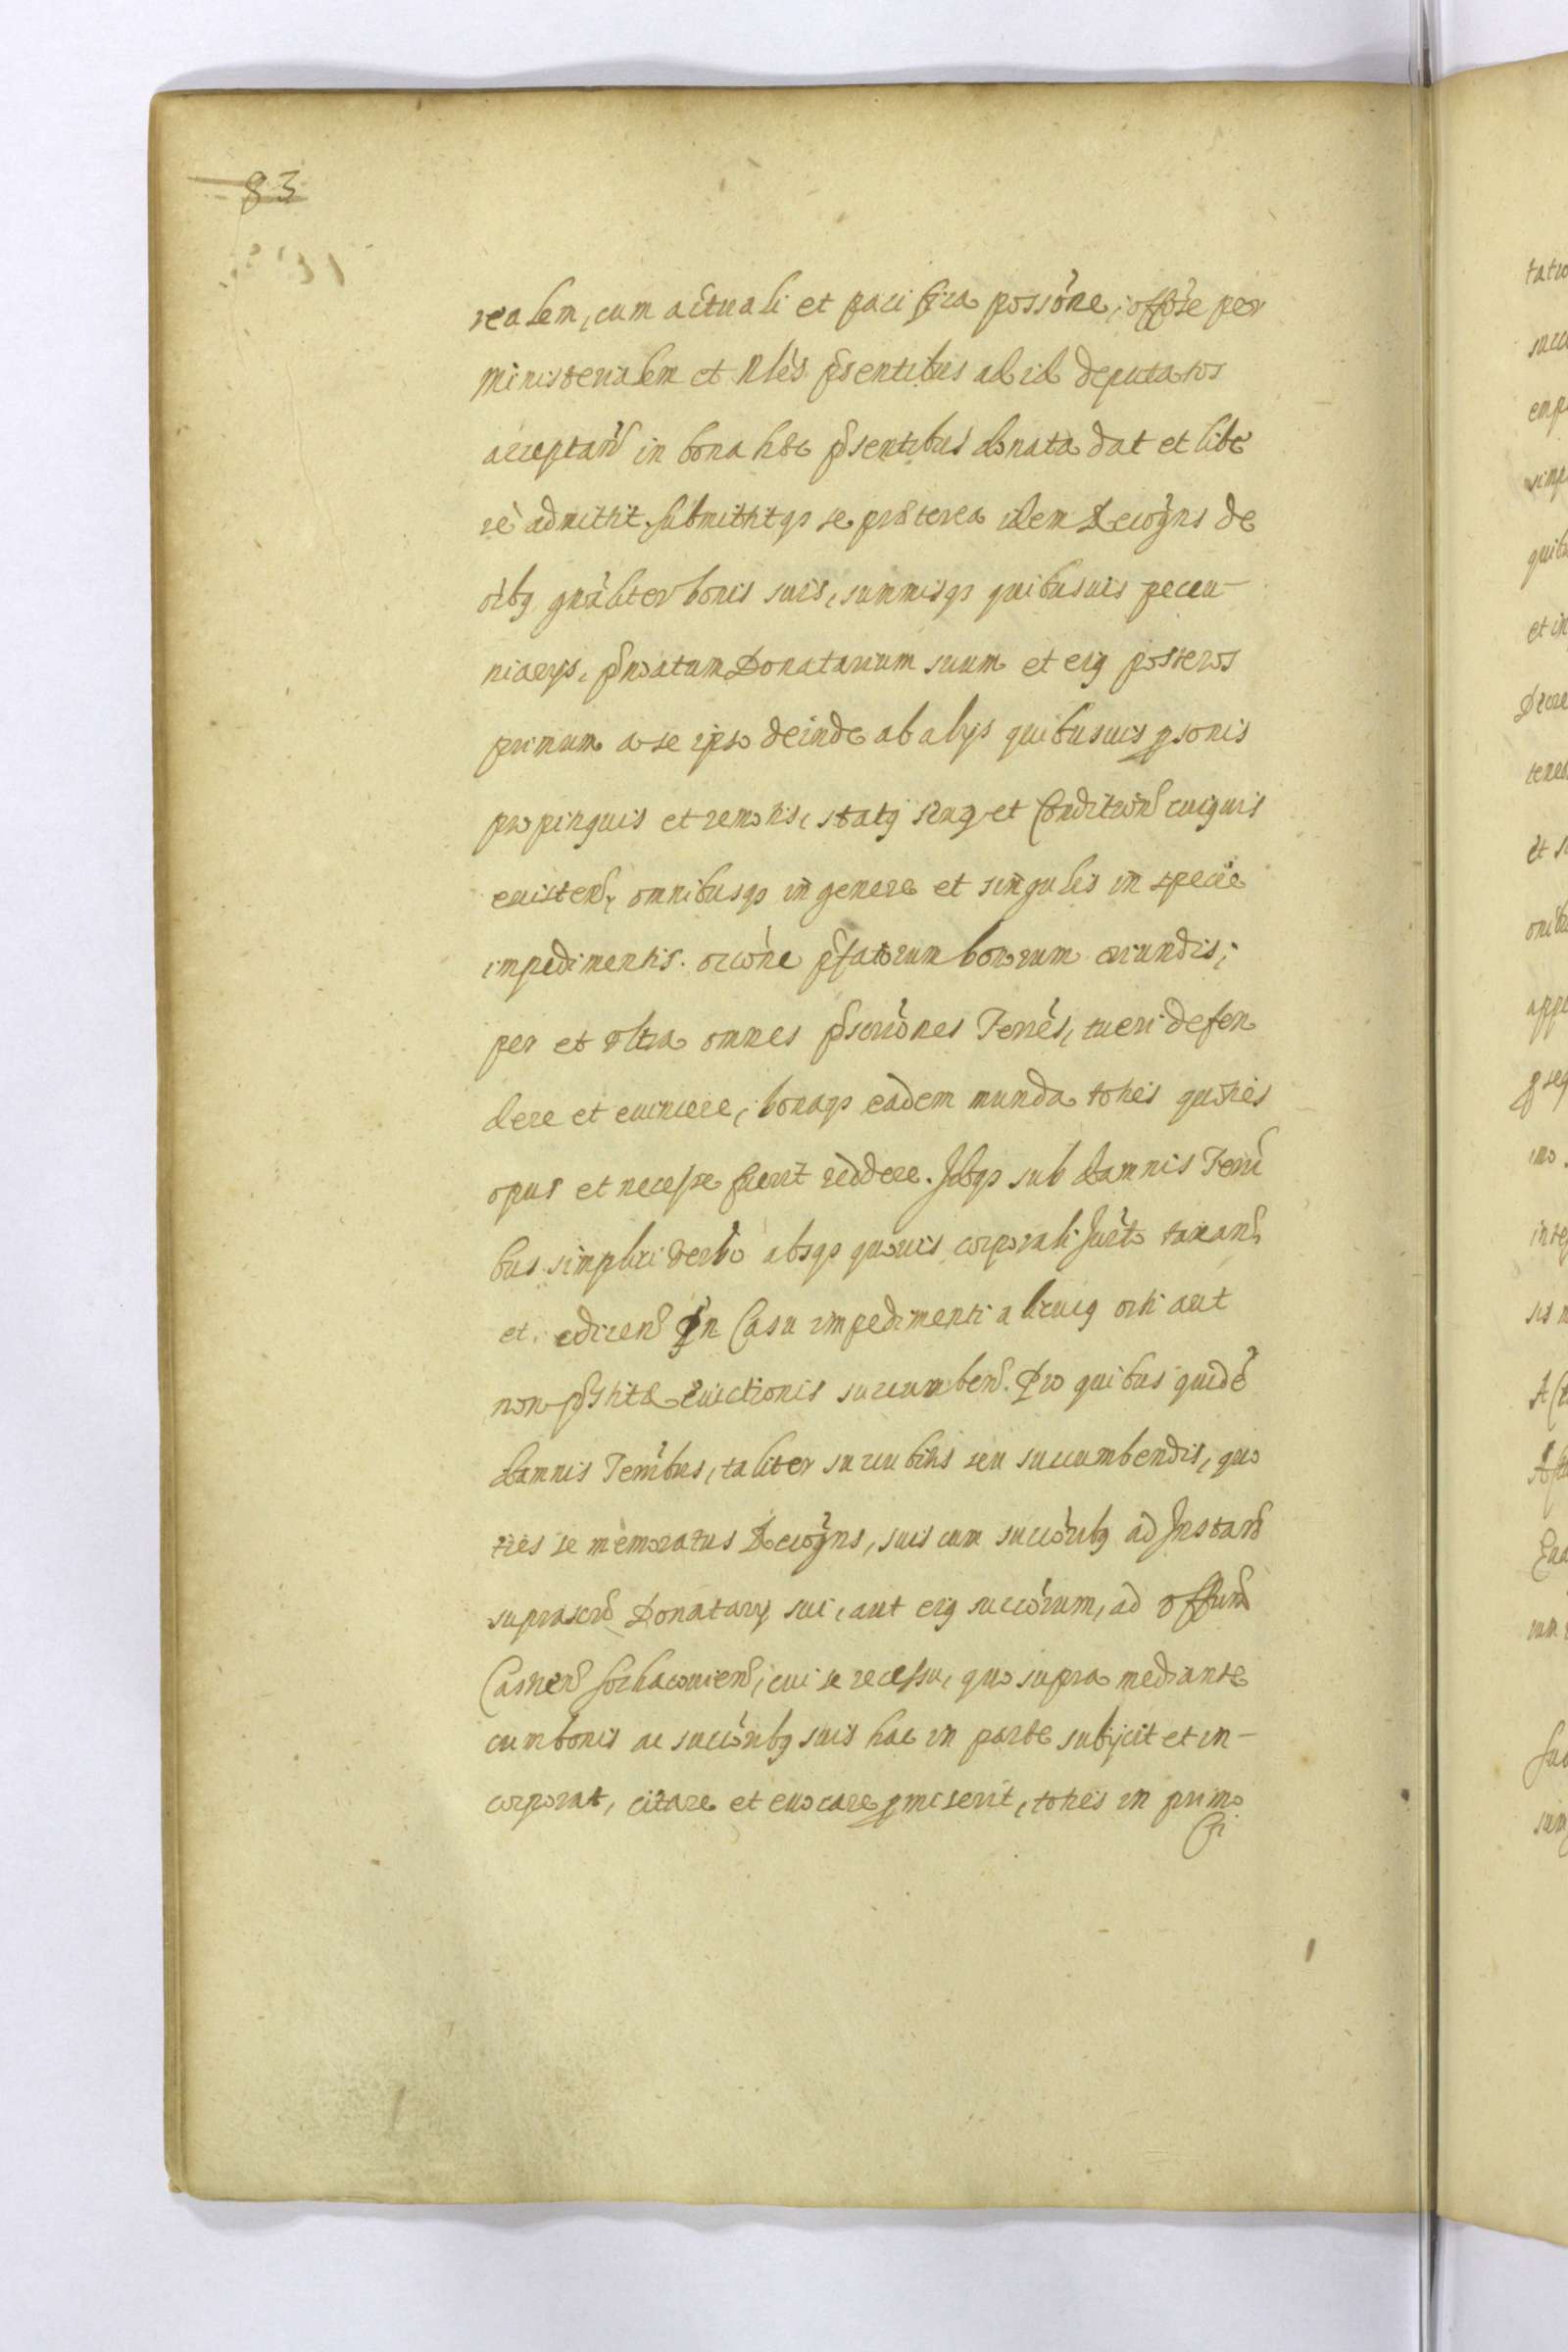 83
realem, cum actuali et pacifica possone, offose per
ministerialem et Nles psentibus ad id deputatos
acceptand in bona hac psentibus donata dat et libe
re admittit, submittitqs se praeterea idem Recogns de
oibq gnaliter bonis suis, summisqs quibusuis pecu-
niarys, pnoatum Donatarium suum et eiq posteros
primum a se ipso deinde ab alys quibusuis psonis
propinquis et remotis, statq sexq et Conditions cuiquis
existen, omnibusqs in genere et singulis in specie
impedimentis. occone pfatorum bonorum oriundis,
per et vltra omnes pscriones Terres, tueri defen
dere et euincere, bonaqs eadem munda toties quoties
opus et necesse fuerit reddere. Idqs sub damnis Terri
bus simplici verbo absqs quouis corporali Jurto taxand
et edicend In Casu impedimenti alicuiq orti aut
non pstitae Euictionis succumben. Pro quibus quide
damnis Terribus, taliter succubitis seu succumbendis, quo
ties se memoratus Recogns, suis cum succoribq ad Instand
suprascrd Donatary sui, aut eiq succorum, ad offium
Castren Sochaczouien, cui se recessu, quo supra mediante
cum bonis ac succoribq suis hac in parte subijcit et in-
corporat, citare et euocare pmiserit, toties in primo
83
tatio
quib
et in